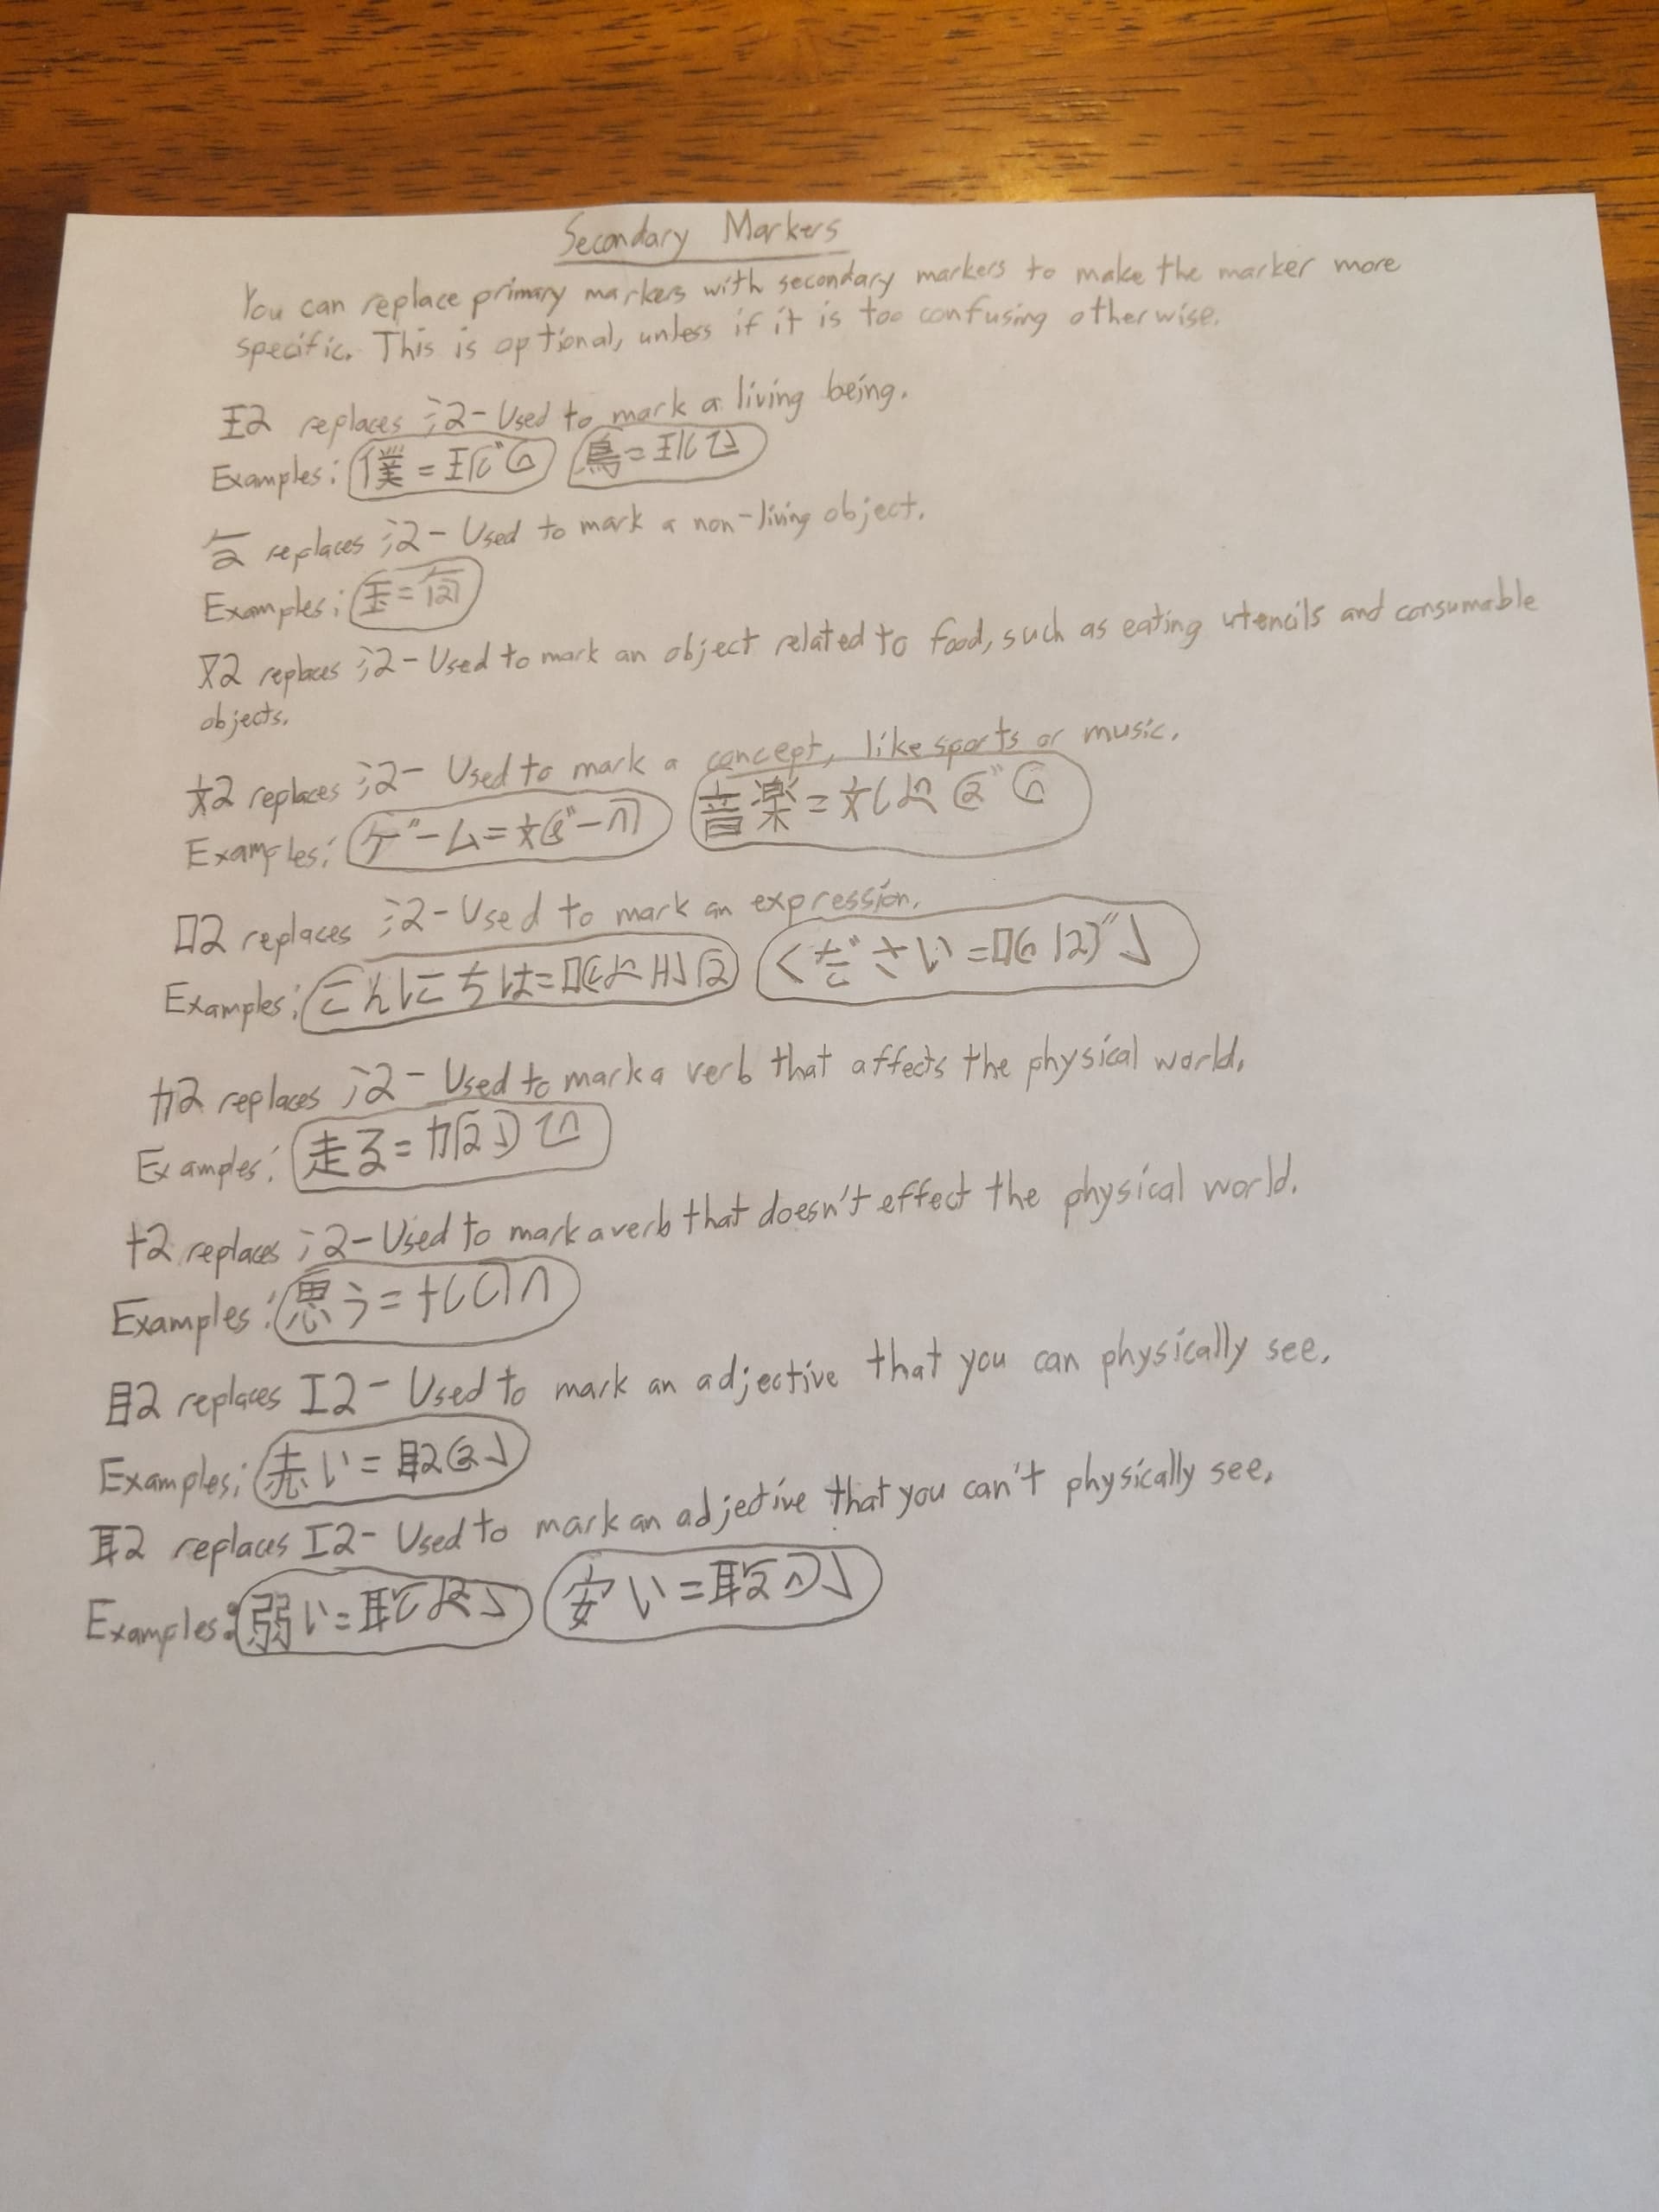 Secondary Markers
You can replace primary markers with secondary markers to make the marker more
specific. This is optional, unless if it is too confusing otherwise.
replaces - Used to mark a living being.
Examples: 僕 = 鳥 =
replaces - Used to mark a non-living object.
Examples: 玉 =
replaces - Used to mark an object related to food, such as eating utensils and consumable
objects.
replaces - Used to mark a concept, like sports or music.
Examples: ゲーム = 音楽 =
replaces - Used to mark an expression.
Examples: こんにちは = ください =
replaces - Used to mark a verb that affects the physical world.
Examples: 走る =
replaces - Used to mark a verb that doesn't effect the physical world.
Examples: 思う =
目2 replaces I2 - Used to mark an adjective that you can physically see.
Examples: 赤い =
耳2 replaces I2 - Used to mark an adjective that you can't physically see.
Examples: 弱い = 安い =